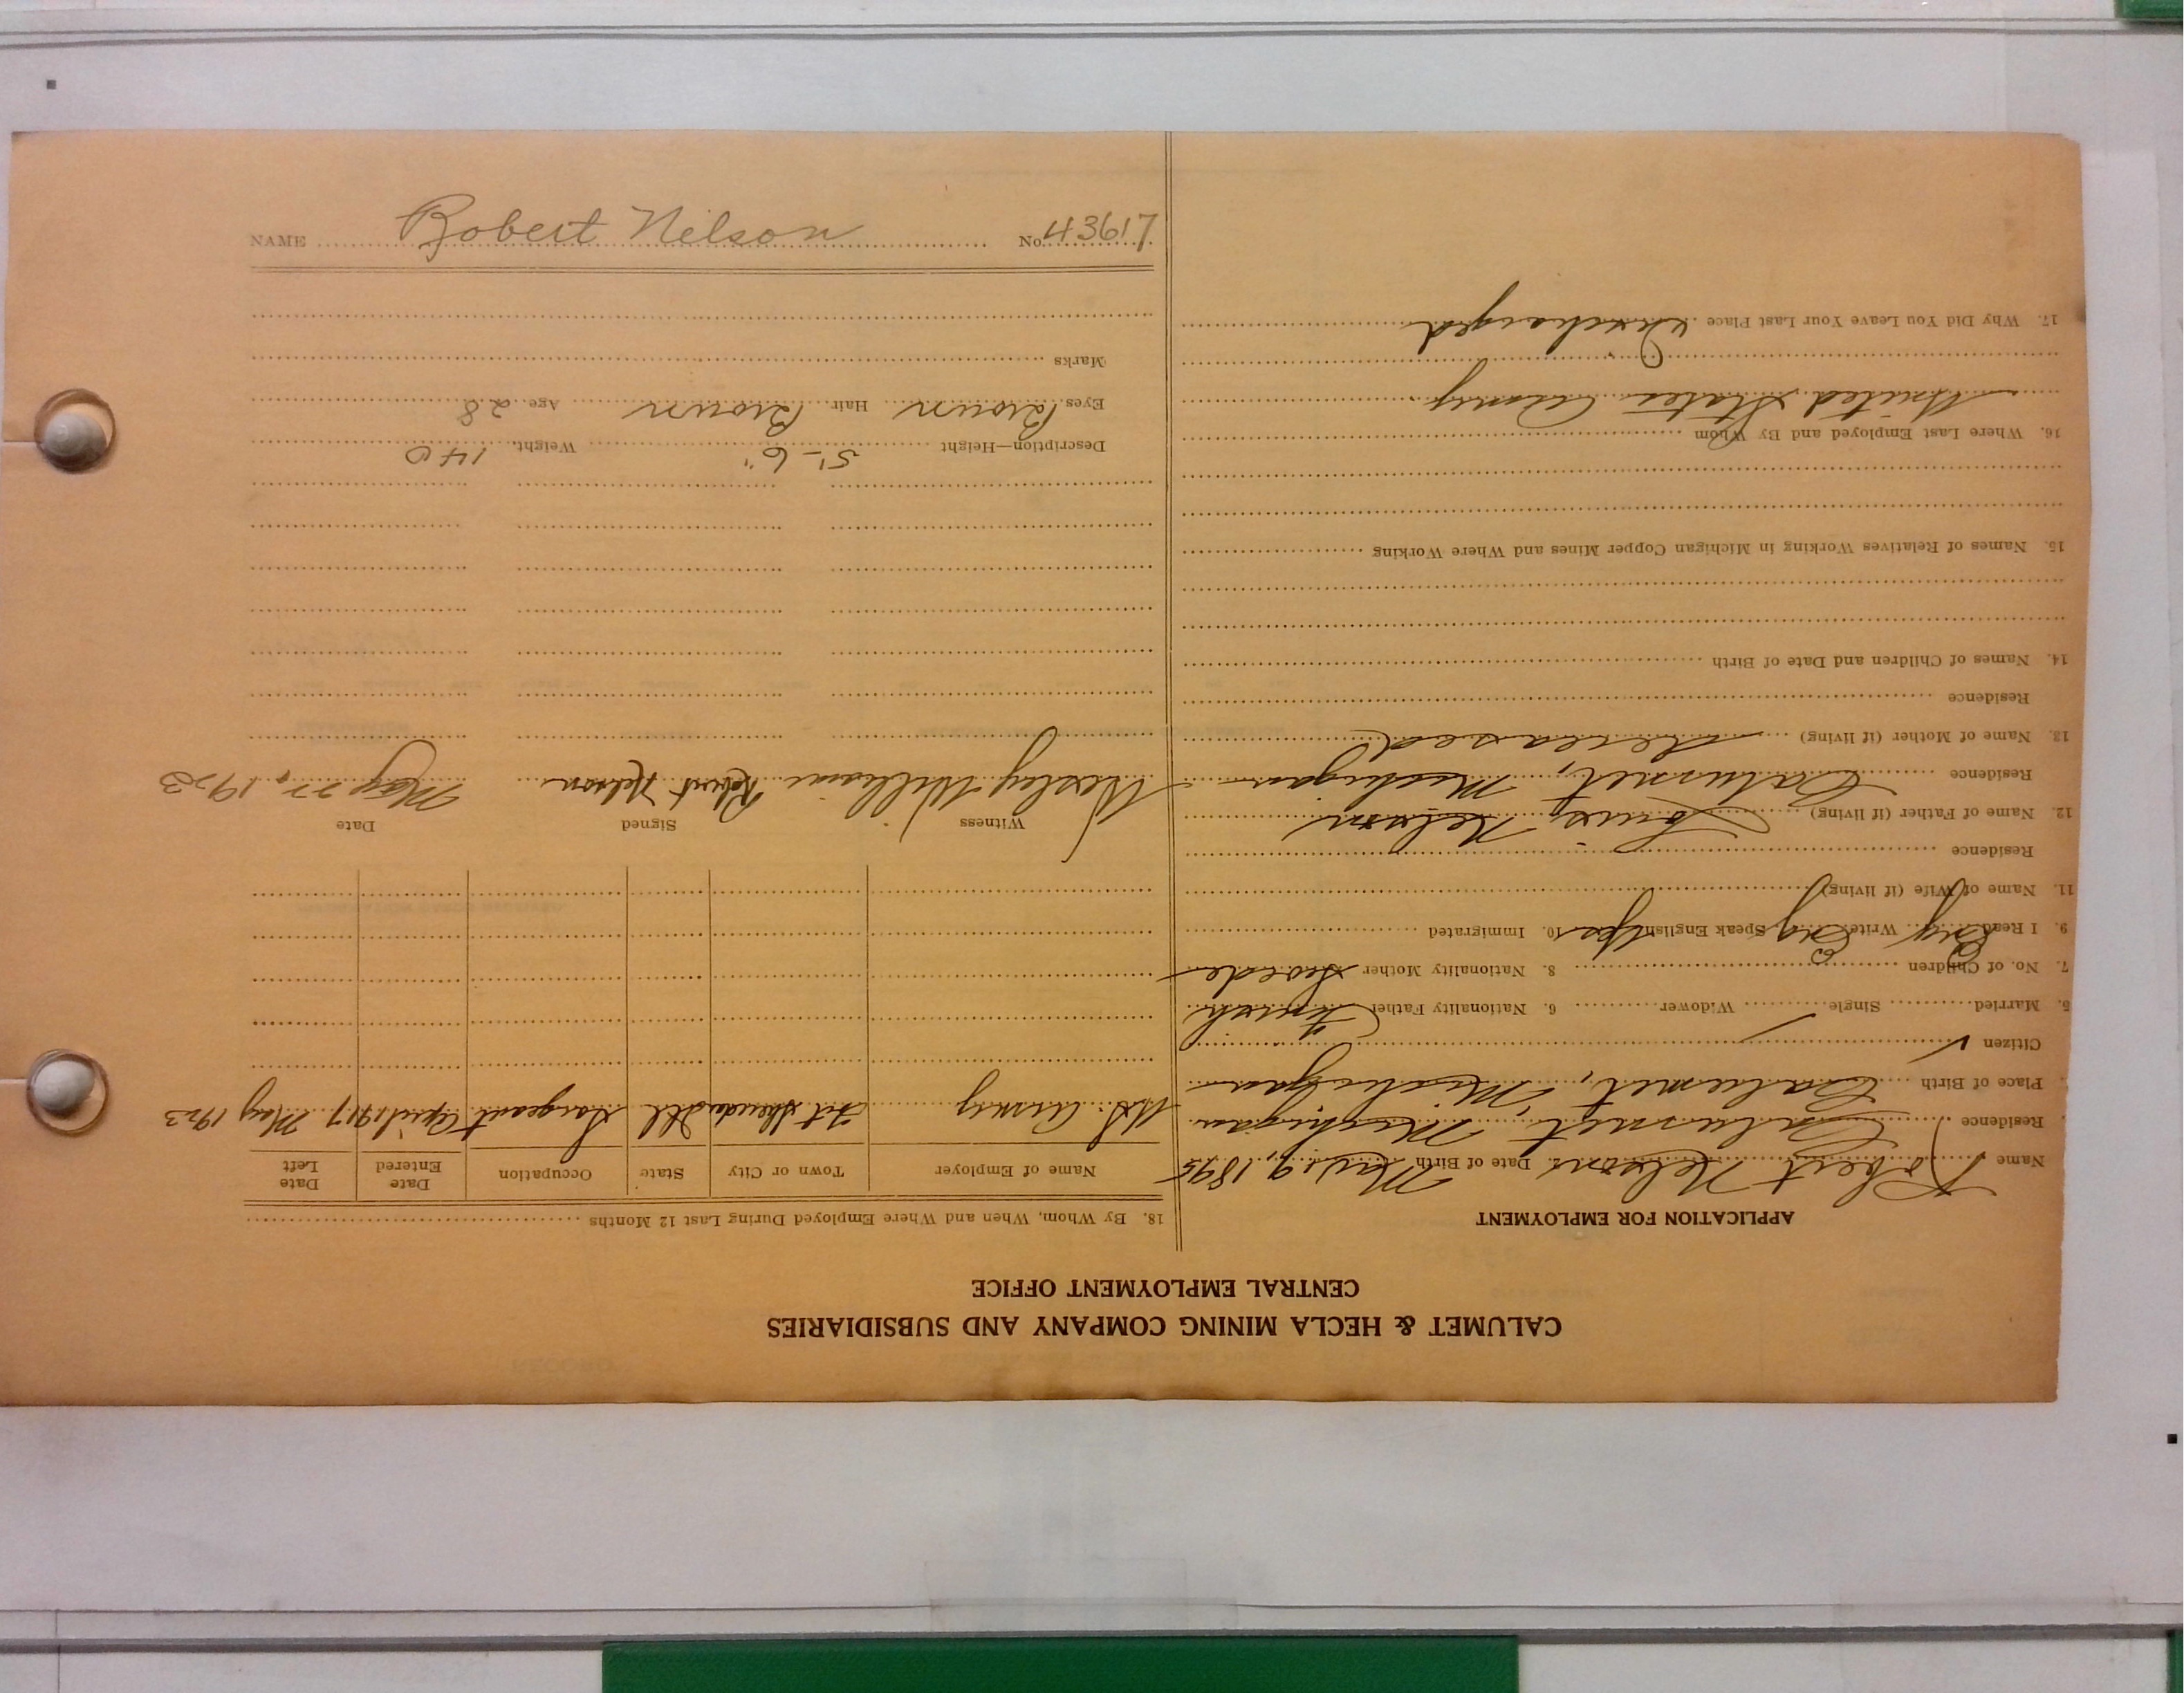 CALUMET & HECLA MINING COMPANY AND SUBSIDIARIES
CENTRAL EMPLOYMENT OFFICE
APPLICATION FOR EMPLOYMENT
Name Robert Nelson Date of Birth 9, 1895
Residence Calumet, Michigan
Place of Birth Calumet, Michigan
Citizen ✓
5. Married Single ✓ Widower 6. Nationality Father Finish
7. No. of Children 8. Nationality Mother Swede
9. I Read Eng Write Eng Speak English Yes 10. Immigrated
11. Name of Wife (if living)
Residence
12. Name of Father (if living) Louis Nelson
Residence Calumet, Michigan
13. Name of Mother (if living) deceased
Residence
14. Names of Children and Date of Birth
15. Names of Relatives Working in Michigan Copper Mines and Where Working
16. Where Last Employed and By Whom
United States Army
17. Why Did You Leave Your Last Place Discharged
18. By Whom, When and Where Employed During Last 12 Months
Name of Employer Town or City State Occupation Date Entered Date Left
U.S. Army Fort Sheridan Ill Sargeant April 1917 May 1923
Witness Signed Date
Wesley Williams Robert Nelson May 22, 1923
Description—Height 5'-6" Weight 140
Eyes Brown Hair Brown Age 28
Marks
NAME Robert Nelson No. 43617